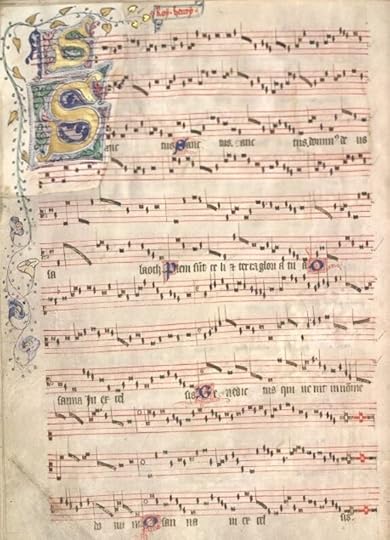 Roy henry
S
Sanc tus Sanc tus sanc tus domin de us
sa baoth Pleni sūt ce li et terra gloria tu a O
sanna In ex cel sis Be nedic tus qui ve nit in noīe
do mi ni O san na in ex cel sis